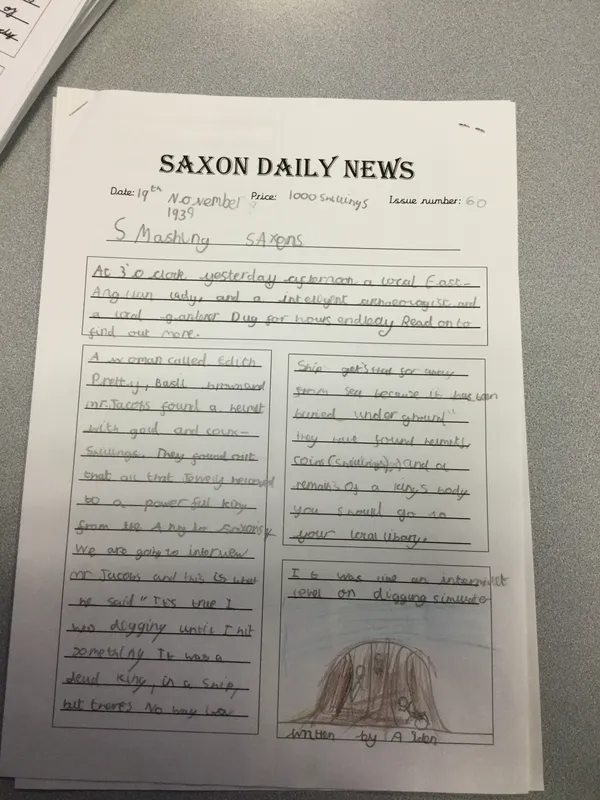 of
SAXON DAILY NEWS
Date: 19th November 1939 Price: 1000 Snillings Issue number: 60
SMashing SAxons
At 3'o clock yesterday afternoon a local East-
Anglian lady, and a inteligent archeaologist and
a local gardner Dug for hours endlessly Read on to
find out more.
A woman called Edith
Pretty, Basil brown and
mr. Jacobs found a helmet
with gold and coins-
Snillings. They found out
that all that Jewelry belonged
to a powerfull king
from the Anglo Saxons
We are going to interview
mr Jacobs and this is what
he said "It's true I
was digging until I hit
something It was a
dead king, in a ship,
but theres No way
Ship get's that far away
from sea because it has been
buried under ground"
they found helmets,
coins (snillings), and a
remains of a kings body
you should go to
your local library.
It was like an intermidet
level on digging simulater
written by Aiden